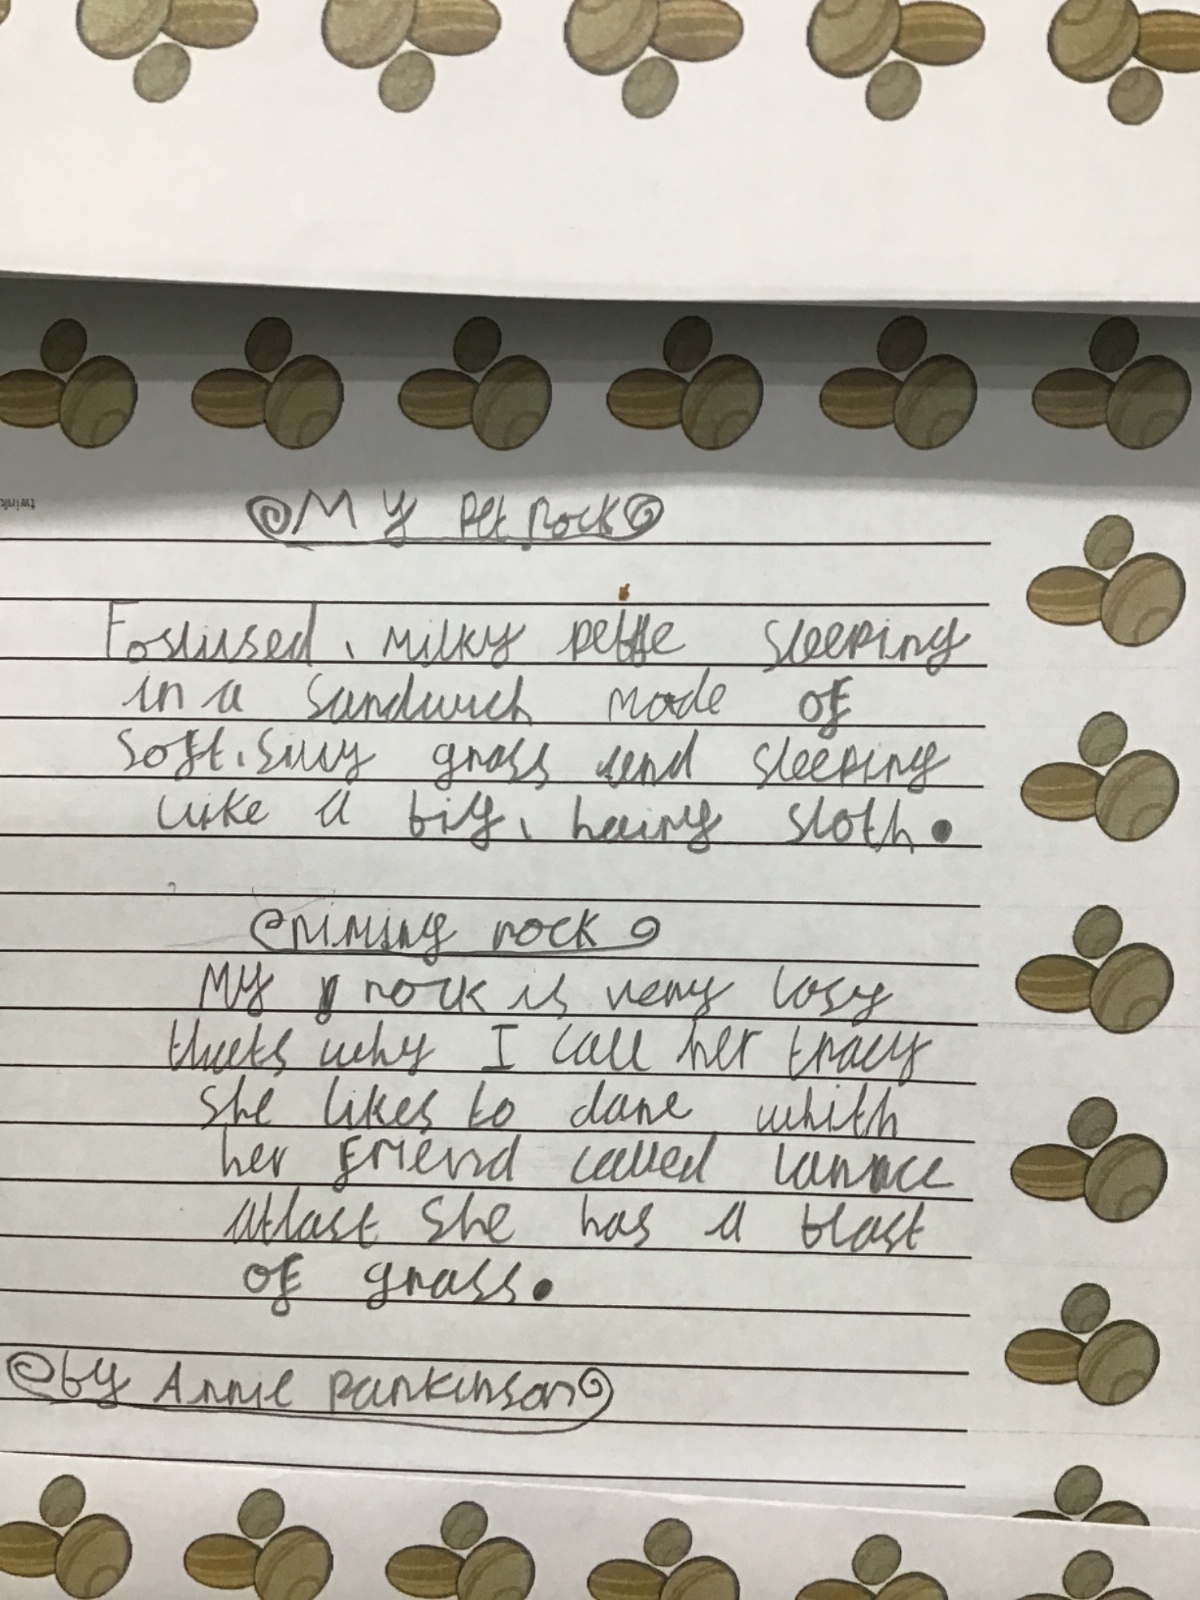 My Pet Rock
Foslised, Milky pebble sleeping
in a sandwich made of
soft, silky grass and sleeping
like a big, hairy sloth.
riming rock
My rock is very losy
thats why I call her tracy
she likes to dane whith
her friend called
atlast she has a blast
of grass.
by Annie parkinson